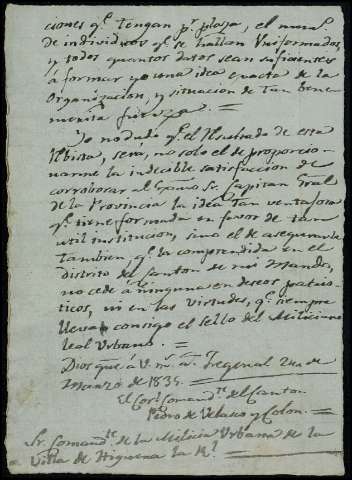 ciones qᵉ. tengan pʳ. plaza, el num.º
de individuos qᵉ. se hallan Vniformados,
y todos quantos datos sean suficientes
á formar yo una idea exacta de la
Organizacion, y situacion de tan bene
merita fuerza. =
Yo no dudo qᵉ. el Resultado de esta
Rbista, será, no solo el de proporcio-
narme la indecible satisfaccion de
corroborar al Exmo Sr. Capitan Gral
de la Provincia la idea tan ventajosa
qᵉ. tiene formada en favor de tan
util institucion, sino el de asegurarle
tambien, qᵉ. la comprendida en el
distrito del Canton de mi Mando,
no cede á ninguna en deseos patrio-
ticos, ni en las virtudes, qᵉ. siempre
lleva consigo el sello del Miliciano
leal Urbano. =
Dios gue á V. mˢ. aˢ. Fregenal 2 de
Marzo de 1835. =
El Corˡ. Comandᵗᵉ. del Canton
Pedro de Velasco y Colon. =
Sr. Comandᵗᵉ. de la Milicia Urbana de la
Villa de Higuera la Rˡ.